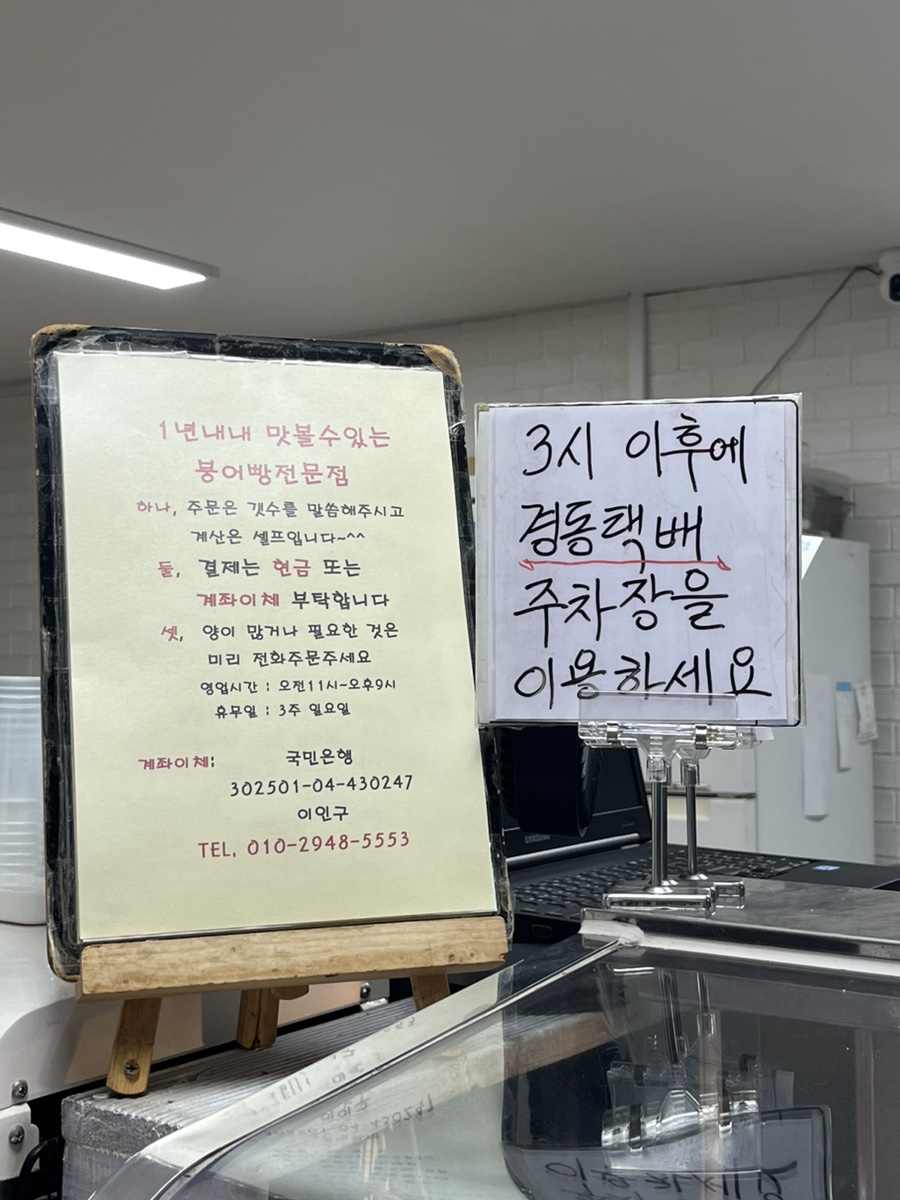 1년내내 맛볼수있는
붕어빵전문점
하나, 주문은 갯수를 말씀해주시고
계산은 셀프입니다~^^
둘, 결제는 현금 또는
계좌이체 부탁합니다
셋, 양이 많거나 필요한 것은
미리 전화주문주세요
영업시간 : 오전11시~오후9시
휴무일 : 3주 일요일
계좌이체: 국민은행
302501-04-430247
이인구
TEL. 010-2948-5553
3시 이후에
경동택배
주차장을
이용하세요